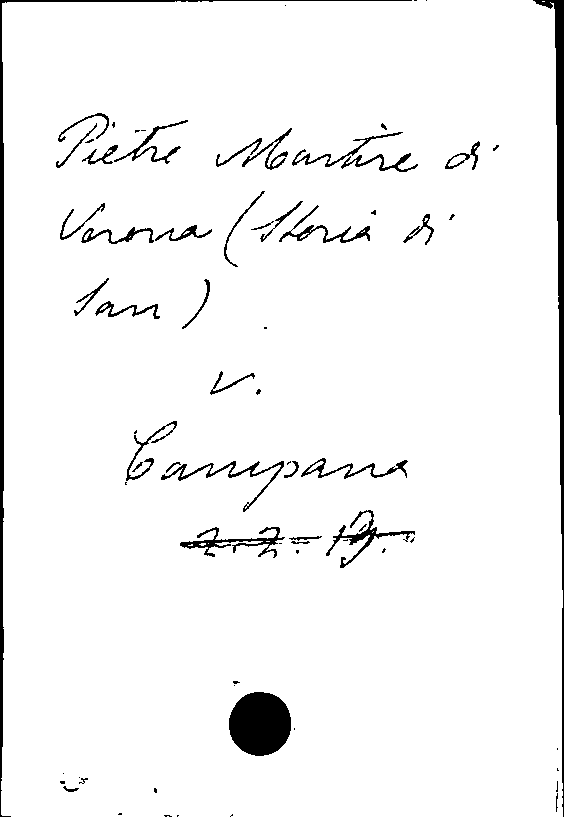 Pietro Martire di
Verona (Storia di
San)
v.
Campana